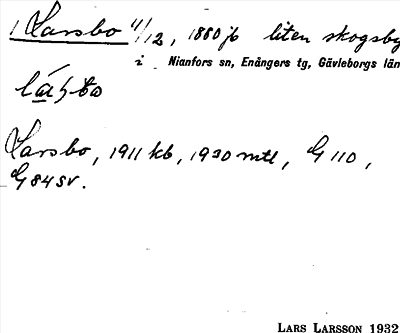 1 Larsbo 4/12, 1880 jb liten skogsby
i Nianfors sn, Enångers tg, Gävleborgs län
Larsbo, 1911 kb, 1930 mtl, G 110,
G 84 sv.
LARS LARSSON 1932